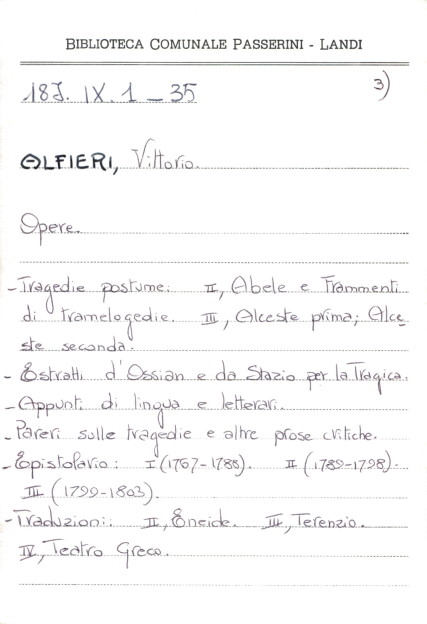 BIBLIOTECA COMUNALE PASSERINI - LANDI
18J. IX. 1 - 35
3)
ALFIERI, Vittorio.
Opere.
- Tragedie postume: II, Abele e Frammenti
di tramelogedie. III, Alceste prima; Alce
ste seconda.
- Estratti d'Ossian e da Stazio per la Tragica.
- Appunti di lingua e letterari.
- Pareri sulle tragedie e altre prose critiche.
- Epistolario: I (1767-1788). II (1789-1798).
III (1799-1803).
- Traduzioni: II, Eneide. III, Terenzio.
IV, Teatro Greco.